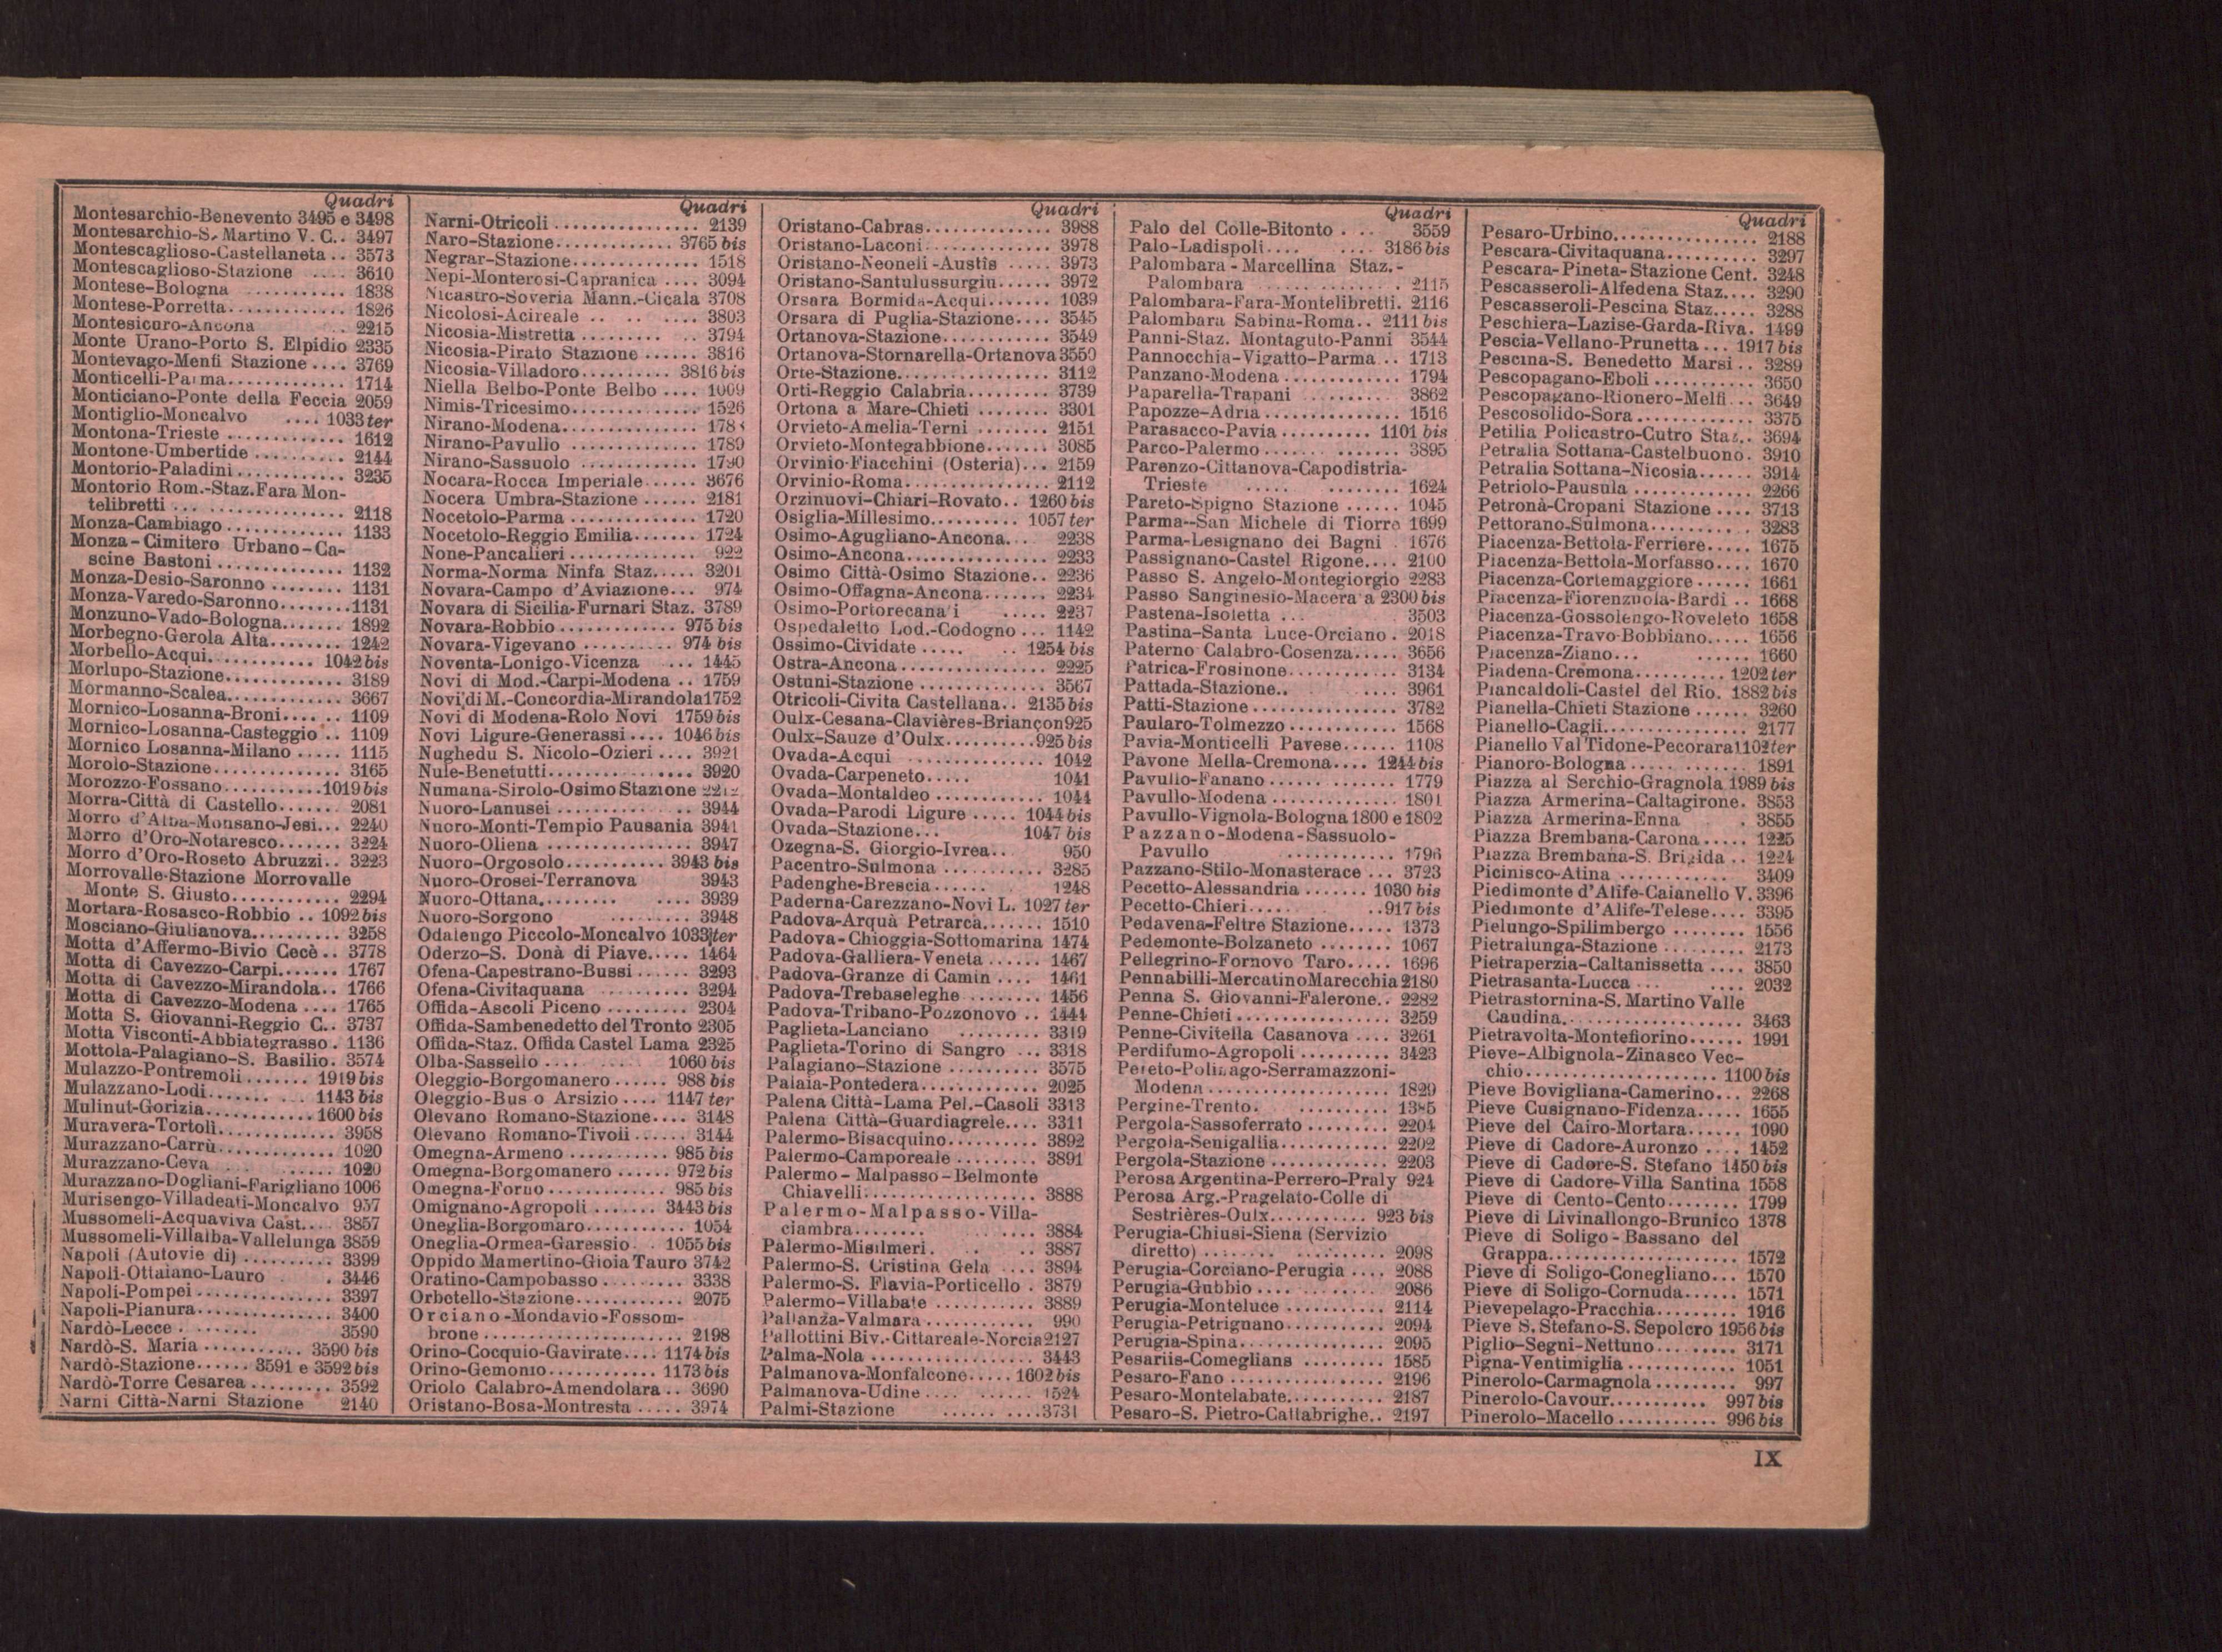 Quadri
Montesarchio-Benevento 3495 e 3498
Montesarchio-S. Martino V. C.. 3497
Montescaglioso-Castellaneta .. 3573
Montescaglioso-Stazione .... 3610
Montese-Bologna ........... 1838
Montese-Porretta............ 1826
Montesicuro-Ancona .. 2215
Monte Urano-Porto S. Elpidio 2335
Montevago-Menfi Stazione .... 3769
Monticelli-Parma............ 1714
Monticiano-Ponte della Feccia 2059
Montiglio-Moncalvo .... 1033 ter
Montona-Trieste ............ 1612
Montone-Umbertide .......... 2144
Montorio-Paladini........... 3235
Montorio Rom.-Staz.Fara Mon-
telibretti ... ............... 2118
Monza-Cambiago ............ 1133
Monza-Cimitero Urbano-Ca-
scine Bastoni ............. 1132
Monza-Desio-Saronno ........ 1131
Monza-Varedo-Saronno........1131
Monzuno-Vado-Bologna....... 1892
Morbegno-Gerola Alta........ 1242
Morbello-Acqui............ 1042 bis
Morlupo-Stazione............ 3189
Mormanno-Scalea............ 3667
Mornico-Losanna-Broni.... .. 1109
Mornico-Losanna-Casteggio .. 1109
Mornico Losanna-Milano ..... 1115
Morolo-Stazione............. 3165
Morozzo-Fossano..........1019 bis
Morra-Città di Castello....... 2081
Morro d'Alba-Monsano-Jesi... 2240
Morro d'Oro-Notaresco....... 3224
Morro d'Oro-Roseto Abruzzi.. 3223
Morrovalle-Stazione Morrovalle
Monte S. Giusto............ 2294
Mortara-Rosasco-Robbio .. 1092 bis
Mosciano-Giulianova.......... 3258
Motta d'Affermo-Bivio Cecè .. 3778
Motta di Cavezzo-Carpi....... 1767
Motta di Cavezzo-Mirandola.. 1766
Motta di Cavezzo-Modena .... 1765
Motta S. Giovanni-Reggio C.. 3737
Motta Visconti-Abbiategrasso . 1136
Mottola-Palagiano-S. Basilio. 3574
Mulazzo-Pontremoli ....... 1919 bis
Mulazzano-Lodi....... . . 1143 bis
Mulinut-Gorizia............ 1600 bis
Muravera-Tortolì............. 3958
Murazzano-Carrù............. 1020
Murazzano-Ceva ... ..... 1020
Murazzano-Dogliani-Farigliano 1006
Murisengo-Villadeati-Moncalvo 957
Mussomeli-Acquaviva Cast.... 3857
Mussomeli-Villalba-Vallelunga 3859
Napoli (Autovie di) .......... 3399
Napoli-Ottaiano-Lauro . 3446
Napoli-Pompei ............... 3397
Napoli-Pianura............... 3400
Nardò-Lecce . ....... 3590
Nardò-S. Maria ........... 3590 bis
Nardò-Stazione...... 3591 e 3592 bis
Nardò-Torre Cesarea ......... 3592
Narni Città-Narni Stazione 2140
Quadri
Narni-Otricoli ................ 2139
Naro-Stazione............. 3765 bis
Negrar-Stazione.............. 1518
Nepi-Monterosi-Capranica .... 3094
Nicastro-Soveria Mann.-Cicala 3708
Nicolosi-Acireale .. .. .... 3803
Nicosia-Mistretta ......... .. 3794
Nicosia-Pirato Stazione ...... 3816
Nicosia-Villadoro.......... 3816 bis
Niella Belbo-Ponte Belbo .... 1009
Nimis-Tricesimo.............. 1526
Nirano-Modena...............
Nirano-Pavullo .............. 1789
Nirano-Sassuolo ............. 1790
Nocara-Rocca Imperiale...... 3676
Nocera Umbra-Stazione ...... 2181
Nocetolo-Parma .............. 1720
Nocetolo-Reggio Emilia....... 1724
None-Pancalieri .............. 922
Norma-Norma Ninfa Staz..... 3201
Novara-Campo d'Aviazione... 974
Novara di Sicilia-Furnari Staz. 3789
Novara-Robbio ............ 975 bis
Novara-Vigevano .......... 974 bis
Noventa-Lonigo-Vicenza ... 1445
Novi di Mod.-Carpi-Modena .. 1759
Novi di M.-Concordia-Mirandola1752
Novi di Modena-Rolo Novi 1759 bis
Novi Ligure-Generassi .... 1046 bis
Nughedu S. Nicolo-Ozieri .... 3921
Nule-Benetutti................ 3920
Numana-Sirolo-Osimo Stazione 2212
Nuoro-Lanusei ............ .. 3944
Nuoro-Monti-Tempio Pausania 3941
Nuoro-Oliena ................ 3947
Nuoro-Orgosolo........... 3943 bis
Nuoro-Orosei-Terranova 3943
Nuoro-Ottana......... .... 3939
Nuoro-Sorgono ......... 3948
Odalengo Piccolo-Moncalvo 1033 ter
Oderzo-S. Donà di Piave..... 1464
Ofena-Capestrano-Bussi ...... 3293
Ofena-Civitaquana .......... 3294
Offida-Ascoli Piceno ......... 2304
Offida-Sambenedetto del Tronto 2305
Offida-Staz. Offida Castel Lama 2325
Olba-Sassello .... ..... 1060 bis
Oleggio-Borgomanero ...... 988 bis
Oleggio-Bus o Arsizio .... 1147 ter
Olevano Romano-Stazione.... 3148
Olevano Romano-Tivoli ...... 3144
Omegna-Armeno ........... 985 bis
Omegna-Borgomanero ...... 972 bis
Omegna-Forno............. 985 bis
Omignano-Agropoli ....... 3443 bis
Oneglia-Borgomaro........... 1054
Oneglia-Ormea-Garessio . . 1055 bis
Oppido Mamertino-Gioia Tauro 3742
Oratino-Campobasso ......... 3338
Orbetello-Stazione............ 2075
Orciano-Mondavio-Fossom-
brone ...................... 2198
Orino-Cocquio-Gavirate.... 1174 bis
Orino-Gemonio............ 1173 bis
Oriolo Calabro-Amendolara .. 3690
Oristano-Bosa-Montresta ..... 3974
Quadri
Oristano-Cabras.............. 3988
Oristano-Laconi.............. 3978
Oristano-Neoneli-Austis ..... 3973
Oristano-Santulussurgiu...... 3972
Orsara Bormida-Acqui....... 1039
Orsara di Puglia-Stazione.... 3545
Ortanova-Stazione............ 3549
Ortanova-Stornarella-Ortanova 3550
Orte-Stazione................ 3112
Orti-Reggio Calabria......... 3739
Ortona a Mare-Chieti ........ 3301
Orvieto-Amelia-Terni ....... 2151
Orvieto-Montegabbione....... 3085
Orvinio-Fiacchini (Osteria)... 2159
Orvinio-Roma................ 2112
Orzinuovi-Chiari-Rovato.. 1260 bis
Osiglia-Millesimo.......... 1057 ter
Osimo-Agugliano-Ancona... 2238
Osimo-Ancona............... 2233
Osimo Città-Osimo Stazione.. 2236
Osimo-Offagna-Ancona....... 2234
Osimo-Portorecanati ..... 2237
Ospedaletto Lod.-Codogno ... 1142
Ossimo-Cividate ..... .. 1254 bis
Ostra-Ancona................ 2225
Ostuni-Stazione .............. 3567
Otricoli-Civita Castellana.. 2135 bis
Oulx-Cesana-Clavières-Briançon925
Oulx-Sauze d'Oulx.........925 bis
Ovada-Acqui ............... 1042
Ovada-Carpeneto..... 1041
Ovada-Montaldeo ............ 1044
Ovada-Parodi Ligure ..... 1044 bis
Ovada-Stazione... 1047 bis
Ozegna-S. Giorgio-Ivrea... 950
Pacentro-Sulmona ........... 3285
Padenghe-Brescia ...... 1248
Paderna-Carezzano-Novi L. 1027 ter
Padova-Arquà Petrarca....... 1510
Padova-Chioggia-Sottomarina 1474
Padova-Galliera-Veneta ...... 1467
Padova-Granze di Camin .... 1461
Padova-Trebaseleghe ........ 1456
Padova-Tribano-Pozzonovo .. 1444
Paglieta-Lanciano ......... 3319
Paglieta-Torino di Sangro ... 3318
Palagiano-Stazione .......... 3575
Palaia-Pontedera............. 2025
Palena Città-Lama Pel.-Casoli 3313
Palena Città-Guardiagrele.... 3311
Palermo-Bisacquino.......... 3892
Palermo-Camporeale ......... 3891
Palermo-Malpasso-Belmonte
Chiavelli................... 3888
Palermo-Malpasso-Villa-
ciambra........ .... 3884
Palermo-Misilmeri. . .. 3887
Palermo-S. Cristina Gela .... 3894
Palermo-S. Flavia-Porticello . 3879
Palermo-Villabate ........... 3889
Pallanza-Valmara............ 990
Pallottini Biv.-Cittareale-Norcia2127
Palma-Nola ................. 3443
Palmanova-Monfalcone..... 1602 bis
Palmanova-Udine .... ...... 1524
Palmi-Stazione ...... ....3731
Quadri
Palo del Colle-Bitonto . .. 3559
Palo-Ladispoli.... .... 3186 bis
Palombara-Marcellina Staz.-
Palombara ............... 2115
Palombara-Fara-Montelibretti. 2116
Palombara Sabina-Roma.. 2111 bis
Panni-Staz. Montaguto-Panni 3544
Pannocchia-Vigatto-Parma .. 1713
Panzano-Modena ............ 1794
Paparella-Trapani ......... 3862
Papozze-Adria .............. 1516
Parasacco-Pavia .......... 1101 bis
Parco-Palermo...... ....... 3895
Parenzo-Cittanova-Capodistria-
Trieste ..... ........ 1624
Pareto-Spigno Stazione ...... 1045
Parma-San Michele di Tiorre 1699
Parma-Lesignano dei Bagni . 1676
Passignano-Castel Rigone.... 2100
Passo S. Angelo-Montegiorgio 2283
Passo Sanginesio-Macerata 2300 bis
Pastena-Isoletta ... 3503
Pastina-Santa Luce-Orciano . 2018
Paterno Calabro-Cosenza..... 3656
Patrica-Frosinone............ 3134
Pattada-Stazione.. .... 3961
Patti-Stazione ............... 3782
Paularo-Tolmezzo ........... 1568
Pavia-Monticelli Pavese...... 1108
Pavone Mella-Cremona.... 1244 bis
Pavullo-Fanano ............. 1779
Pavullo-Modena ............. 1801
Pavullo-Vignola-Bologna 1800 e 1802
Pazzano-Modena-Sassuolo-
Pavullo ............ 1796
Pazzano-Stilo-Monasterace ... 3723
Pecetto-Alessandria ....... 1030 bis
Pecetto-Chieri..... ..917 bis
Pedavena-Feltre Stazione..... 1373
Pedemonte-Bolzaneto ........ 1067
Pellegrino-Fornovo Taro..... 1696
Pennabilli-Mercatino Marecchia 2180
Penna S. Giovanni-Falerone.. 2282
Penne-Chieti ................ 3259
Penne-Civitella Casanova .... 3261
Perdifumo-Agropoli .......... 3423
Pereto-Polinago-Serramazzoni-
Modena ................... 1829
Pergine-Trento. .......... 1385
Pergola-Sassoferrato ......... 2204
Pergola-Senigallia............ 2202
Pergola-Stazione ............. 2203
Perosa Argentina-Perrero-Praly 924
Perosa Arg.-Pragelato-Colle di
Sestrières-Oulx........... 923 bis
Perugia-Chiusi-Siena (Servizio
diretto) ........ .......... 2098
Perugia-Corciano-Perugia .... 2088
Perugia-Gubbio .... ....... 2086
Perugia-Monteluce ........... 2114
Perugia-Petrignano........... 2094
Perugia-Spina................ 2095
Pesariis-Comeglians ......... 1585
Pesaro-Fano ................. 2196
Pesaro-Montelabate.......... 2187
Pesaro-S. Pietro-Callabrighe.. 2197
Quadri
Pesaro-Urbino................ 2188
Pescara-Civitaquana.......... 3297
Pescara-Pineta-Stazione Cent. 3248
Pescasseroli-Alfedena Staz.... 3290
Pescasseroli-Pescina Staz..... 3288
Peschiera-Lazise-Garda-Riva. 1499
Pescia-Vellano-Prunetta ... 1917 bis
Pescina-S. Benedetto Marsi .. 3289
Pescopagano-Eboli ........... 3650
Pescopagano-Rionero-Melfi... 3649
Pescosolido-Sora ............ 3375
Petilia Policastro-Cutro Staz.. 3694
Petralia Sottana-Castelbuono. 3910
Petralia Sottana-Nicosia...... 3914
Petriolo-Pausula ............. 2266
Petronà-Cropani Stazione .... 3713
Pettorano-Sulmona........... 3283
Piacenza-Bettola-Ferriere..... 1675
Piacenza-Bettola-Morfasso.... 1670
Piacenza-Cortemaggiore ...... 1661
Piacenza-Fiorenzuola-Bardi .. 1668
Piacenza-Gossolengo-Roveleto 1658
Piacenza-Travo-Bobbiano..... 1656
Piacenza-Ziano... ...... 1660
Piadena-Cremona..........1202 ter
Piancaldoli-Castel del Rio. 1882 bis
Pianella-Chieti Stazione ...... 3260
Pianello-Cagli................ 2177
Pianello Val Tidone-Pecorara1102 ter
Pianoro-Bologna ..... ....... 1891
Piazza al Serchio-Gragnola 1989 bis
Piazza Armerina-Caltagirone. 3853
Piazza Armerina-Enna . 3855
Piazza Brembana-Carona ..... 1225
Piazza Brembana-S. Brigida .. 1224
Picinisco-Atina ............. 3409
Piedimonte d'Alife-Caianello V. 3396
Piedimonte d'Alife-Telese.... 3395
Pielungo-Spilimbergo ........ 1556
Pietralunga-Stazione ......... 2173
Pietraperzia-Caltanissetta .... 3850
Pietrasanta-Lucca ... .... 2032
Pietrastornina-S. Martino Valle
Caudina.................... 3463
Pietravolta-Montefiorino...... 1991
Pieve-Albignola-Zinasco Vec-
chio..................... 1100 bis
Pieve Bovigliana-Camerino... 2268
Pieve Cusignano-Fidenza..... 1655
Pieve del Cairo-Mortara...... 1090
Pieve di Cadore-Auronzo .... 1452
Pieve di Cadore-S. Stefano 1450 bis
Pieve di Cadore-Villa Santina 1558
Pieve di Cento-Cento........ 1799
Pieve di Livinallongo-Brunico 1378
Pieve di Soligo-Bassano del
Grappa..................... 1572
Pieve di Soligo-Conegliano... 1570
Pieve di Soligo-Cornuda...... 1571
Pievepelago-Pracchia......... 1916
Pieve S. Stefano-S. Sepolcro 1956 bis
Piglio-Segni-Nettuno......... 3171
Pigna-Ventimiglia ............ 1051
Pinerolo-Carmagnola ......... 997
Pinerolo-Cavour.......... 997 bis
Pinerolo-Macello ........... 996 bis
IX